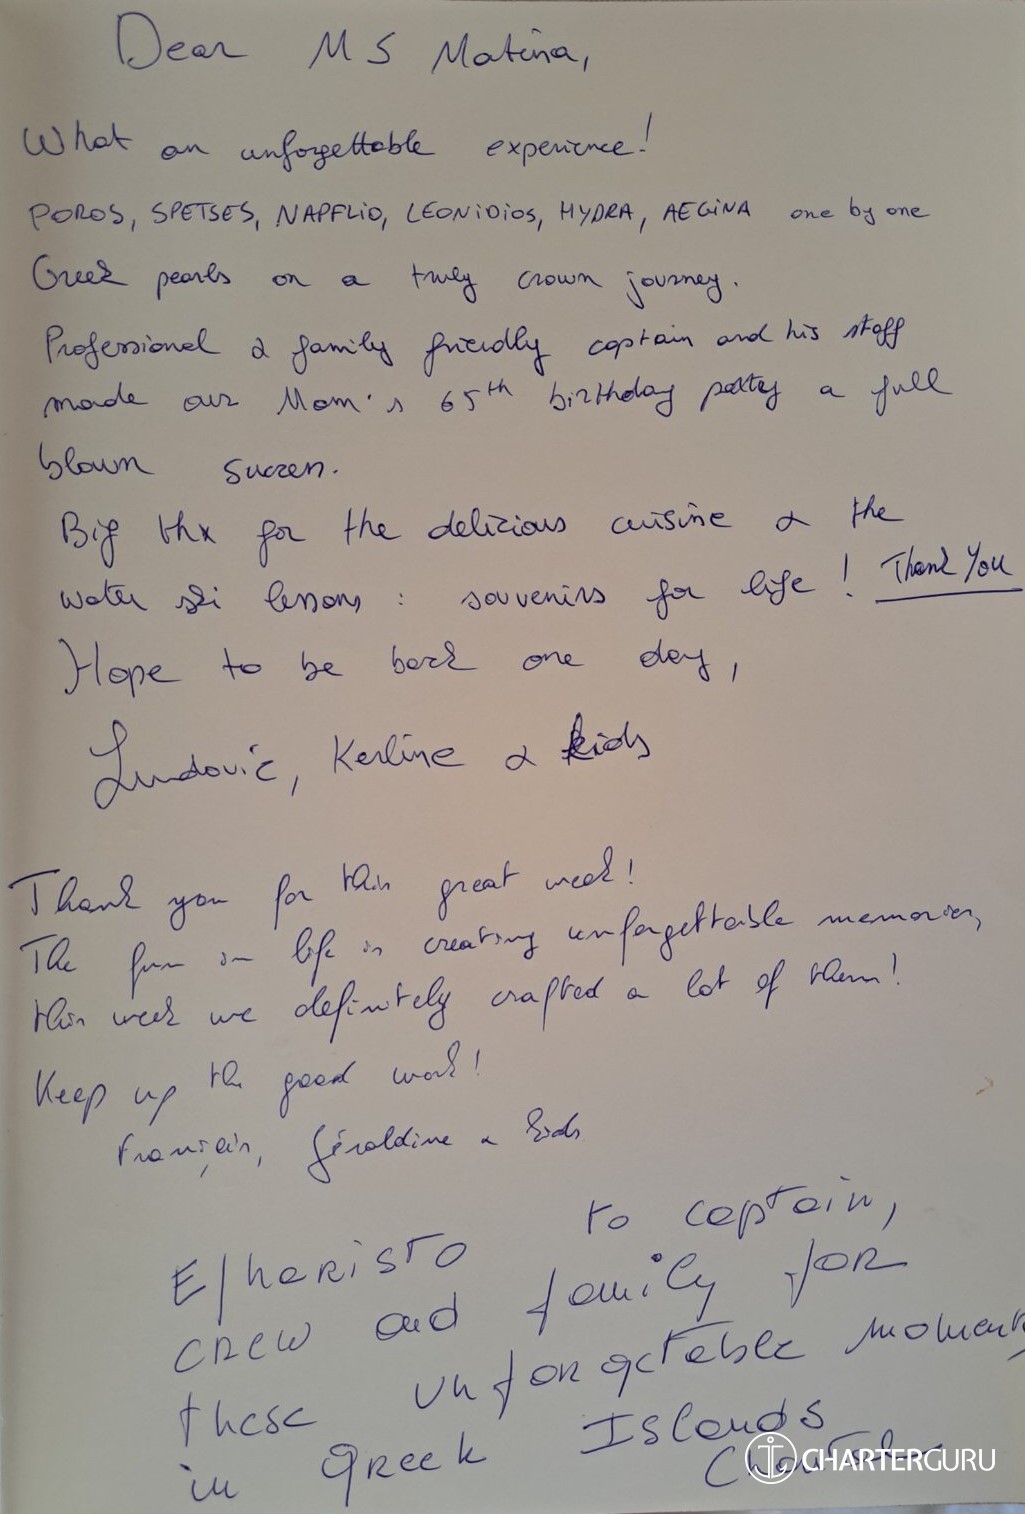 Dear MS Matina,
What an unforgettable experience!
POROS, SPETSES, NAPFLIO, LEONIDIOS, HYDRA, AEGINA one by one
Greek pearls on a truly crown journey.
Professional & family friendly captain and his staff
made our Mom's 65th birthday party a full
blown success.
Big thx for the delicious cuisine & the
water ski lessons : souvenirs for life! Thank You
Hope to be back one day,
Ludovic, Kerline & kids
Thank you for this great week!
The fun in life is creating unforgettable memories,
this week we definitely crafted a lot of them!
Keep up the good work!
Géraldine & kids
Efharisto to captain,
crew and family for
these unforgetable moments
in Greek Islands
CHARTERGURU